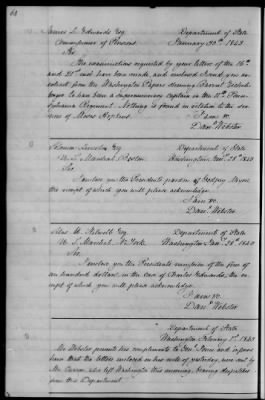 James L. Edwards Esq Department of State
Commissioner of Pensions January 30th 1843
Sir,
The examinations requested by your letters of the 16th
and 21st and have been made, and enclosed I send you an
extract from the Washington Papers showing
to have been a Supernumerary Captain in the 11th Penn-
sylvania Regiment. Nothing is found in relation to the ser-
vices of Moses Hopkins.
I am &c
Danl Webster
Lincoln, Esq Department of State
U. S. Marshal, Boston. Washington, Jan. 28th 1843
Sir,
I enclose you the President's pardon of
the receipt of which you will please acknowledge
I am &c.
Danl Webster
Silas M. Stilwell Esq Department of State
U. S. Marshal, N. York. Washington Jan. 28th 1843
Sir,
I enclose you the President's remission of the fine of
one hundred dollars, in the case of Charles Edwards, the re-
ceipt of which you will please acknowledge.
I am &c
Danl Webster
Department of State
Washington February 1st 1843
Mr. Webster presents his compliments to and informs
him that the letters enclosed in his note of yesterday, were sent by
Mr. who left Washington this morning, bearing despatches
from this Department.